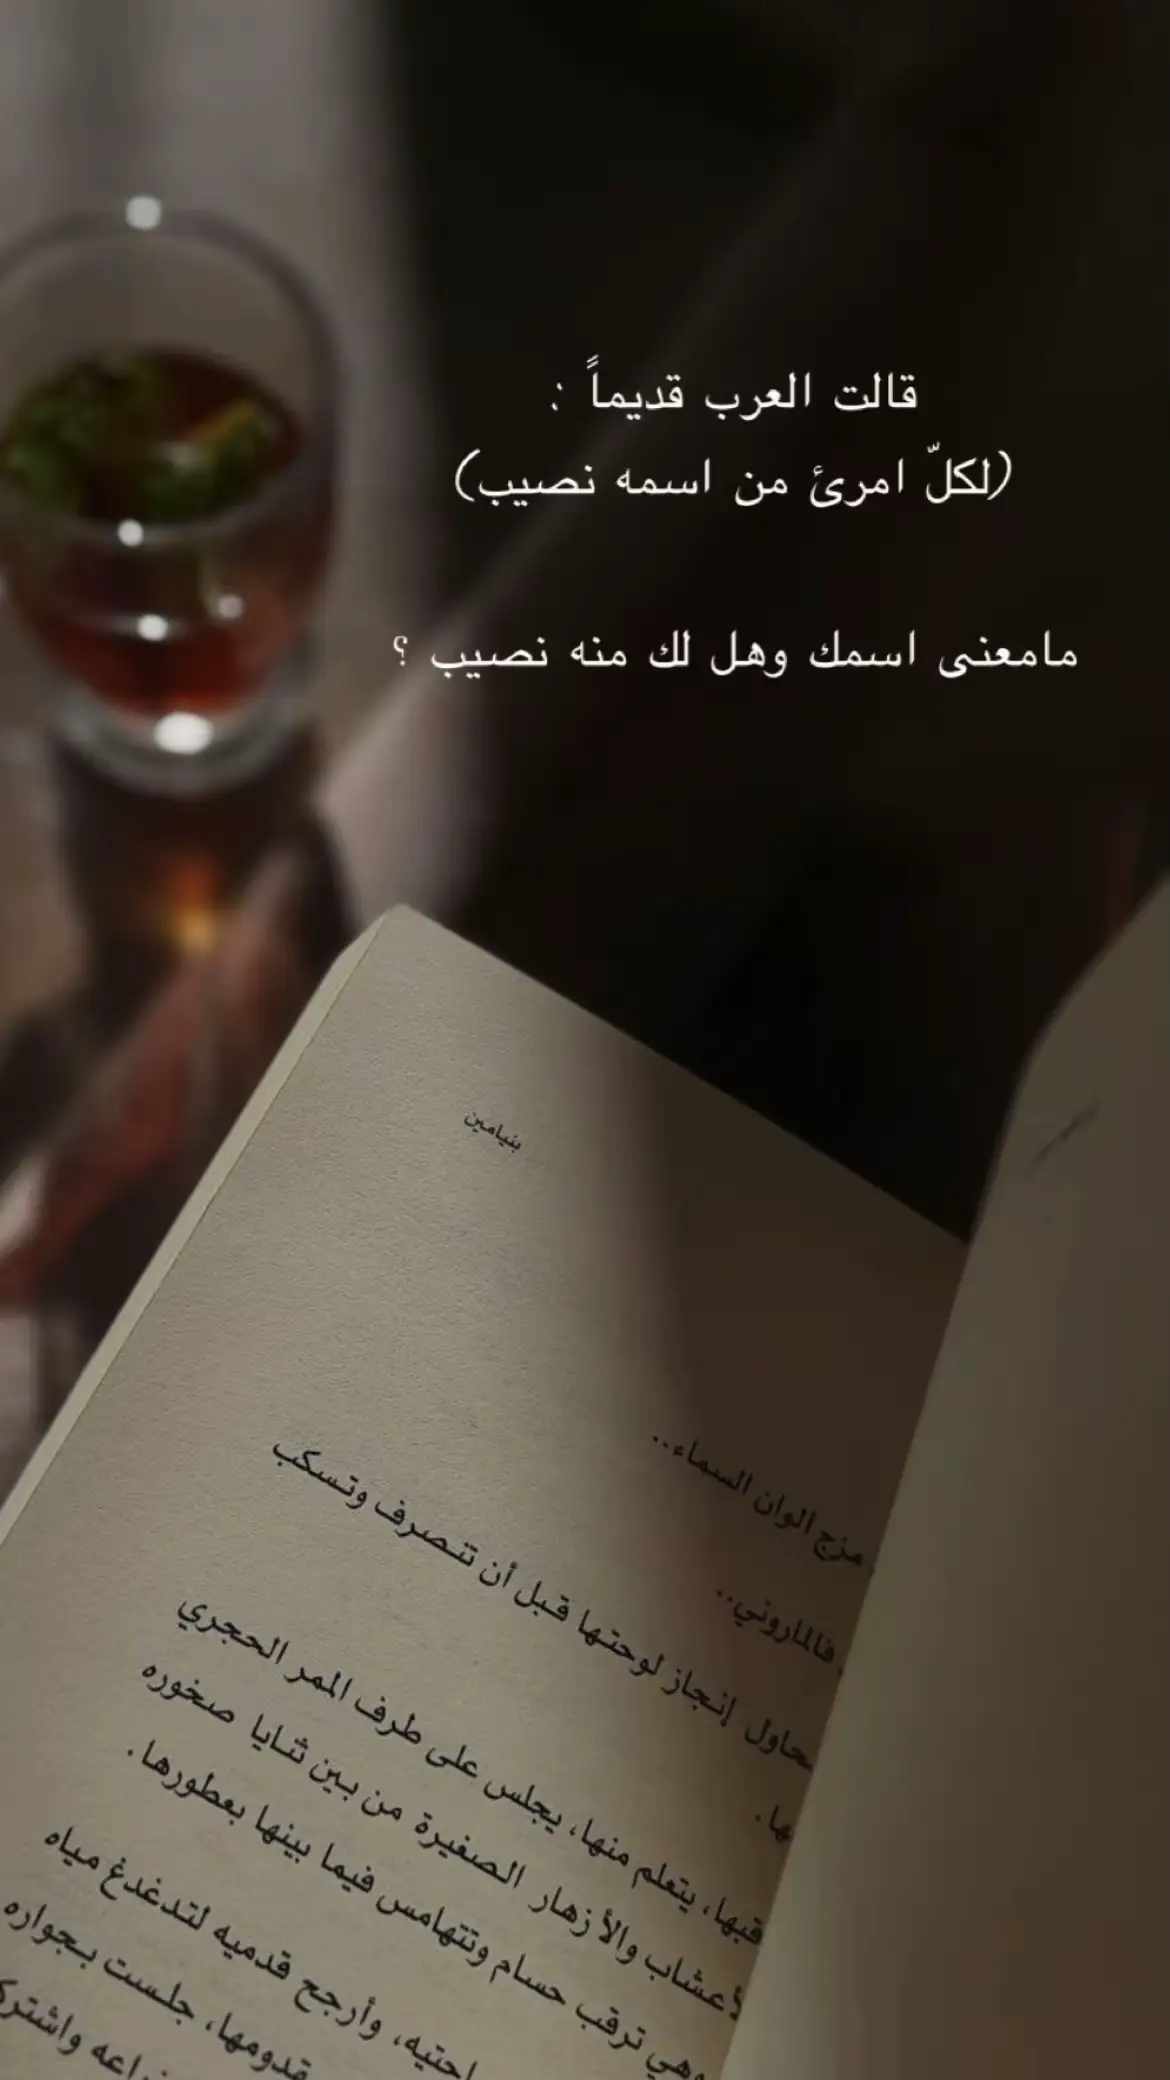 قالت العرب قديماً :
(لكلّ امرئ من اسمه نصيب)
مامعنى اسمك وهل لك منه نصيب ؟
بنيامين
مزج الوان السماء..
فالماروني..
حاول إنجاز لوحتها قبل أن تنصرف وتسكب
ها.
قبها، يتعلم منها، يجلس على طرف الممر الحجري
لأعشاب والأزهار الصغيرة من بين ثنايا صخوره
وهي ترقب حسام وتتهامس فيما بينها بعطورها.
احتيه، وأرجح قدميه لتدغدغ مياه
قدومها، جلست بجواره
واشترك